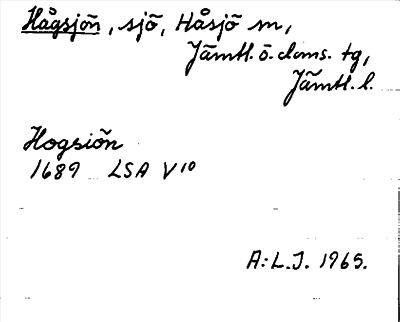 Hågsjön, sjö, Håsjö sn,
Jämtl. ö. doms. tg,
Jämtl. l.
Hogsiön
1689 LSA V10
A:L.J. 1965.